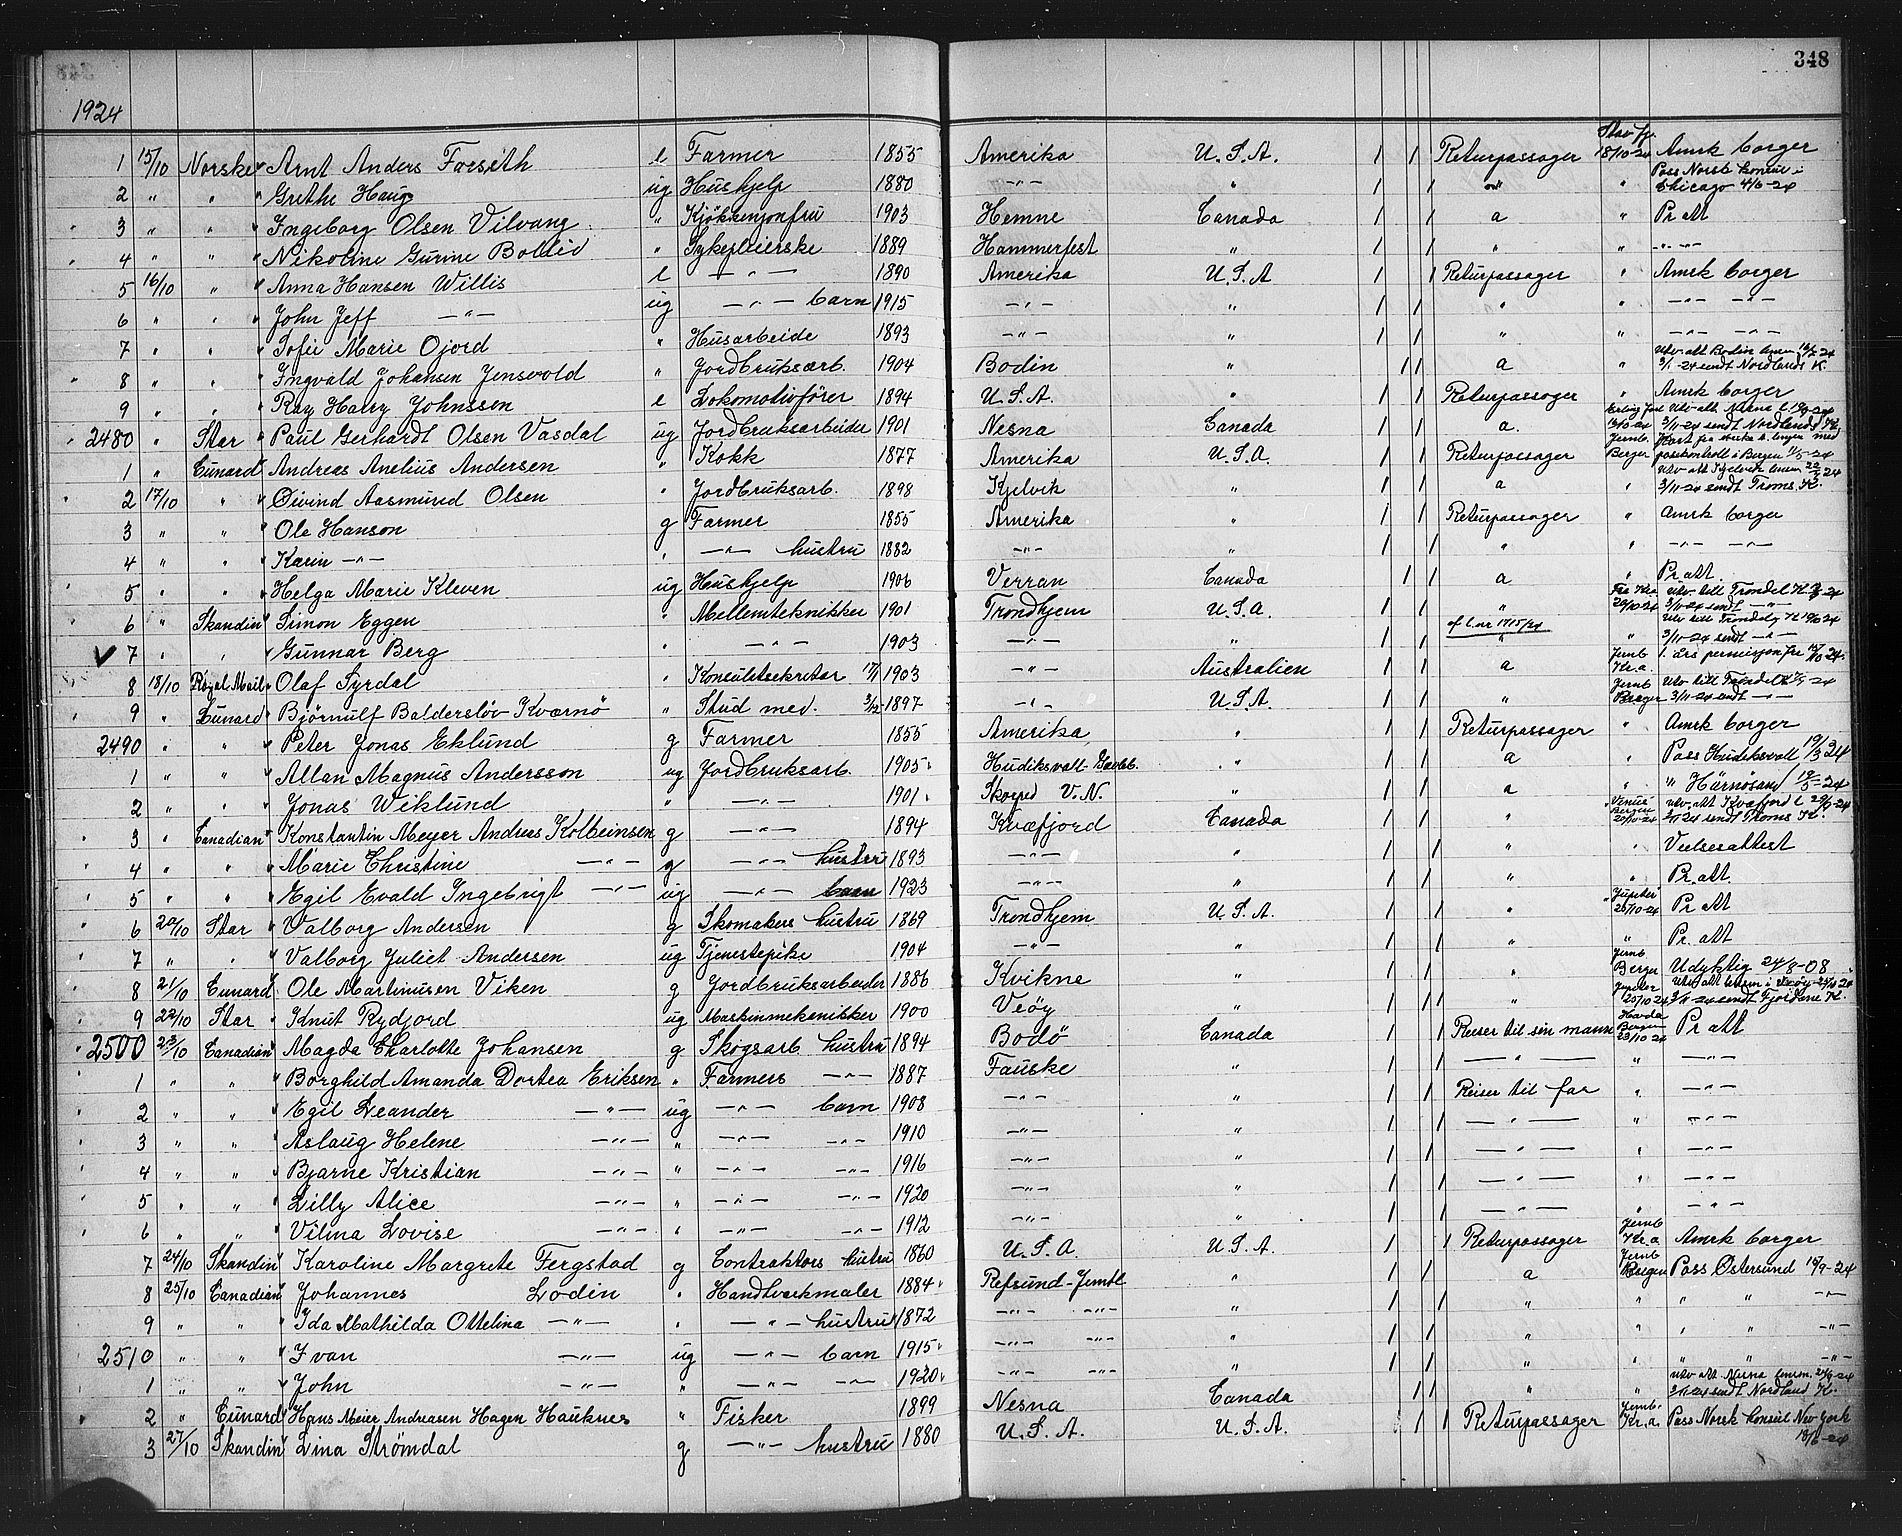 348
1924
1 15/10 Norske " Arnt Anders Forseth e Farmer 1855 Amerika U.S.A. 1 1 Returpassager 18/10-24 Amrk borger
2 " " " Grethe Haug ug Hushjelp 1880 -"- " 1 1 " " Pass Norsk Konsul i Chicago 4/6-24
3 " " " Ingeborg Olsen Vilvang " Kjökkenjonfru 1903 Hemne Canada 1 1 a " Pr att
4 " " " Nikoline Gurine " Sykepleierske 1889 Hammerfest " 1 1 " " -"-"-
5 16/10 " " Anna Hansen Willis e -"- 1890 Amerika U.S.A 1 1 Returpassager " Amrk borger
6 " " " John Jeff -"- ug -"- barn 1915 -"- " 1 1 " " -"- -"-
7 " " " Sofie Marie Ojord " Husarbeide 1893 -"- " 1 1 " " -"- -"-
8 " " " Ingvald Johansen Jensvold " Jordbruksarb. 1904 Bodin " 1 1 a " Utv. att Bodin 3/1-24 sendt Nordlands K.
9 " " " Roy Harry Johnssen e Lokomotivfører 1894 U.S.A. " 1 1 Returpassager " Amrk borger
2480 " Star " Paul Gerhardt Olsen Vasdal ug Jordbruksarbeider 1901 Nesna Canada 1 1 a. Utv. att. Nesna 3/11-24 sendt Nordlands K.
1 " Cunard " Andreas Anelius Andersen " Kokk 1877 Amerika U.S.A. 1 1 Returpassager Jernb. Bergen
2 17/10 " " Øivind Aasmund Olsen " Jordbruksarb. 1898 Kjelvik " 1 1 a " Utv att Kjelvik 3/11-24 sendt Troms K.
3 " " " Ole Hanson g Farmer 1855 Amerika " 1 1 Returpassager " Amrk borger
4 " " " Karin -"- " -"- hustru 1882 -"- " 1 1 " " -"- -"-
5 " " " Helga Marie Kleven ug Hushjelp 1906 Verran Canada 1 1 a " Pr att.
6 " Skandin " Simon Eggen " Mellemtekniker 1901 Trondhjem U.S.A. 1 1 " Fra Kra 20/10-24 3/11-24 sendt -"-
7 " " " Gunnar Berg " -"- 1903 -"- " 1 1 cf l.nr 1715/24 " 3/11-24 sendt -"-
8 18/10 Royal Mail " Olaf Syrdal " Konsulatsekretær 17/11 1903 -"- Australien 1 1 a Jernb Kr.a 1. års permisjon fra
9 " Cunard " Bjørnulf Balderslöv Kværnö " Stud med. 3/12 1897 -"- U.S.A. 1 1 " Jernb Bergen 3/11-24 sendt -"-
2490 " " " Peter Jonas Eklund g Farmer 1855 Amerika " 1 1 Returpassager " Amrk borger
1 " " " Allan Magnus Andersson ug Jordbruksarb. 1905 Hudiksvall Gavleb. " 1 1 a " Pass Hudiksvall 19/3 24
2 " " " Jonas Wiklund " -"- 1901 Skorped V.N. " 1 1 a " " Härnösand
3 " Canadian " Konstantin Meyer Andreas Kolbeinsen g -"- 1894 Kvæfjord Canada 1 1 " "Venus" Bergen utv. att Kvæfjord sendt Troms K.
4 " " " Marie Christine -"- g -"- hustru 1893 -"- " 1 1 " " Vielsesattest
5 " " " Egil Evald Ingebrigt -"- ug -"- barn 1923 -"- " 1 1 " " Pr. att.
6 20/10 Star " Valborg Andersen g Skomakers hustru 1869 Trondhjem U.S.A. 1 1 " "Jupiter" Pr att
7 " " " Valborg Juliet Andersen ug Tjenestepike 1904 -"- " 1 1 " " Pr. att
8 21/10 Cunard " Ole Martinusen Viken g Jordbruksarbeider 1886 Kvikne " 1 1 " Jernb Bergen Udyktig 24/8-08
9 22/10 Star " Knut Rydjord ug Maskinmekenikker 1900 Veöy " 1 1 " Jupiter 3/11-24 sendt Fjordane K.
2500 23/10 Canadian " Magda Charlotte Johansen g Skogsarb hustru 1894 Bodö Canada 1 1 Reiser til sin mann Bergen 23/10 24 Pr att
1 " " " Borghild Amanda Dortea Eriksen " Farmers -"- 1887 Fauske " 1 1 -"- " -"-
2 " " " Egil Leander -"- ug -"- barn 1908 -"- " 1 1 Reiser til far " -"-
3 " " " Aslaug Helene -"- " -"- -"- 1910 -"- " 1 1 -"- " -"-
4 " " " Bjarne Kristian -"- " -"- -"- 1916 -"- " 1 1 -"- " -"-
5 " " " Lilly Alice -"- " -"- -"- 1920 -"- " 1 1 -"- " -"-
6 " " " Vilma Lovise -"- " -"- -"- 1912 -"- " 1 1 -"- " -"-
7 24/10 Skandin " Karoline Margrete Fergstad g Contraktörs hustru 1860 U.S.A. U.S.A. 1 1 Returpassager Jernb Kr.a Amrk borger
8 25/10 Canadian " Johannes Lodin " Handtverkmaler 1884 Refsund-Jemtl " 1 1 a Jernb Bergen Pass Östersund
9 " " " Ida Mathilda Ottelina -"- " -"- hustru 1872 -"- -"- " 1 1 " " " " -"-
2510 " " " Ivan -"- ug -"- barn 1915 -"- -"- " 1 1 " " " " -"-
1 " " " John -"- " -"- -"- 1920 -"- -"- " 1 1 " " " " -"-
2 " Cunard " Hans Meier Andreasen Hagen Hauknes " Fisker 1899 Nesna Canada 1 1 " " utv. att Nesna 3/11-24 sendt Nordland K.
3 27/10 Skandin " Lina Strømdal g -"- hustru 1880 U.S.A. U.S.A. 1 1 Returpassager Jernb. Kr.a. Pass Norsk konsul New York 18/6-24